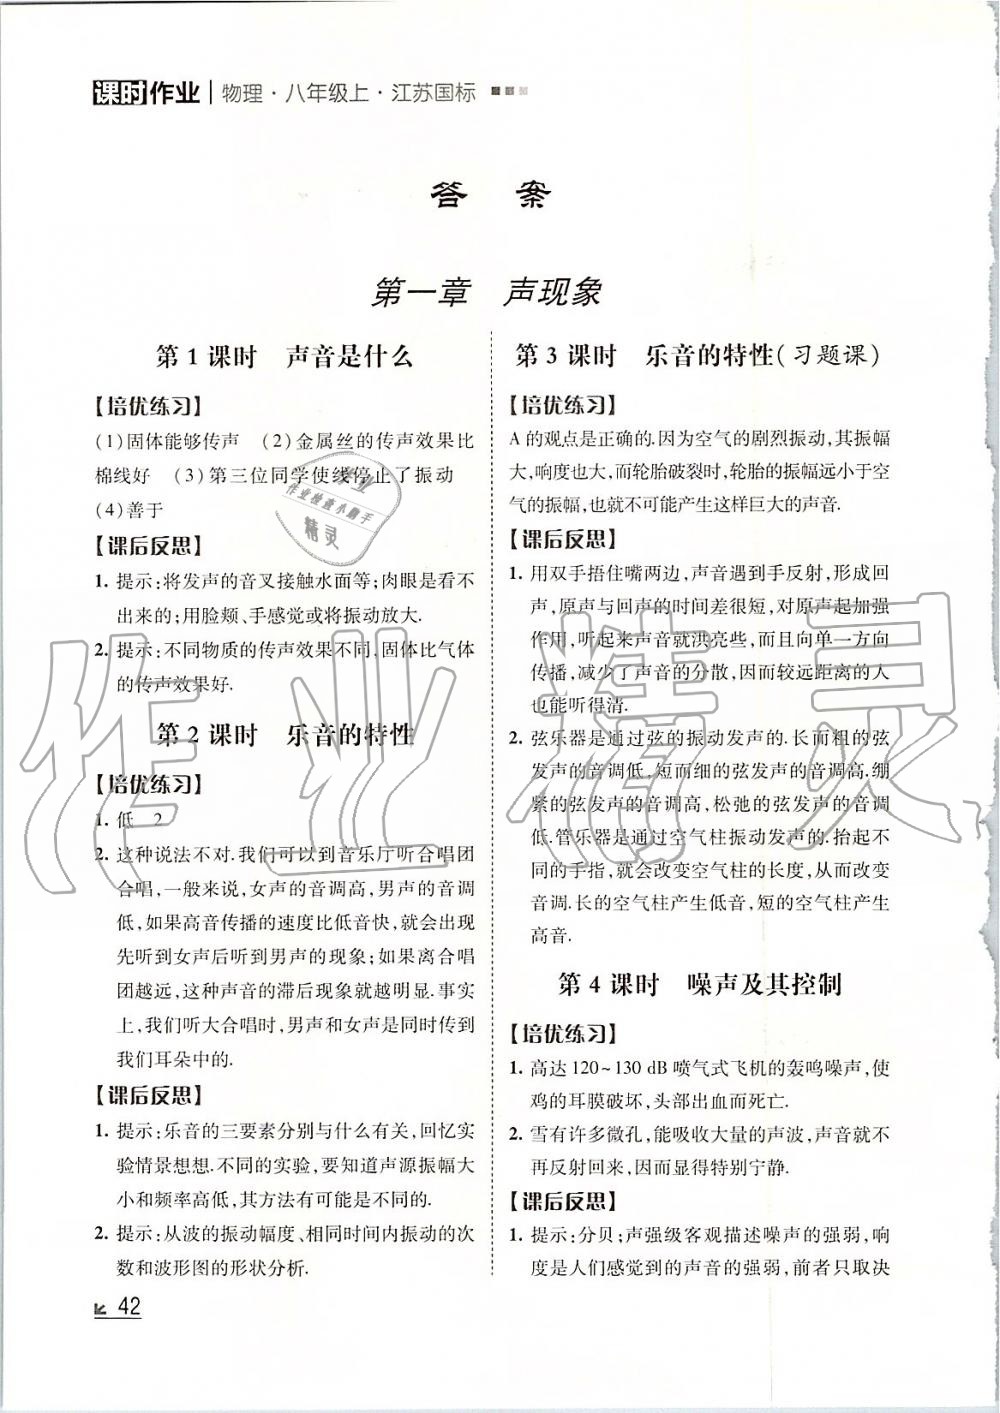 课时作业 物理·八年级上·江苏国标
答 案
第一章 声现象
第 1 课时 声音是什么
【培优练习】
(1)固体能够传声 (2)金属丝的传声效果比
棉线好 (3)第三位同学使线停止了振动
(4)善于
【课后反思】
1. 提示:将发声的音叉接触水面等;肉眼是看不
出来的;用脸颊、手感觉或将振动放大.
2. 提示:不同物质的传声效果不同,固体比气体
的传声效果好.
第 2 课时 乐音的特性
【培优练习】
1. 低 2
2. 这种说法不对.我们可以到音乐厅听合唱团
合唱,一般来说,女声的音调高,男声的音调
低,如果高音传播的速度比低音快,就会出现
先听到女声后听到男声的现象;如果离合唱
团越远,这种声音的滞后现象就越明显.事实
上,我们听大合唱时,男声和女声是同时传到
我们耳朵中的.
【课后反思】
1. 提示:乐音的三要素分别与什么有关,回忆实
验情景想想.不同的实验,要知道声源振幅大
小和频率高低,其方法有可能是不同的.
2. 提示:从波的振动幅度、相同时间内振动的次
数和波形图的形状分析.
第 3 课时 乐音的特性(习题课)
【培优练习】
A 的观点是正确的.因为空气的剧烈振动,其振幅
大,响度也大,而轮胎破裂时,轮胎的振幅远小于空
气的振幅,也就不可能产生这样巨大的声音.
【课后反思】
1. 用双手捂住嘴两边,声音遇到手反射,形成回
声,原声与回声的时间差很短,对原声起加强
作用,听起来声音就洪亮些,而且向单一方向
传播,减少了声音的分散,因而较远距离的人
也能听得清.
2. 弦乐器是通过弦的振动发声的.长而粗的弦
发声的音调低,短而细的弦发声的音调高.绷
紧的弦发声的音调高,松弛的弦发声的音调
低.管乐器是通过空气柱振动发声的.抬起不
同的手指,就会改变空气柱的长度,从而改变
音调.长的空气柱产生低音,短的空气柱产生
高音.
第 4 课时 噪声及其控制
【培优练习】
1. 高达 120~130 dB 喷气式飞机的轰鸣噪声,使
鸡的耳膜破坏,头部出血而死亡.
2. 雪有许多微孔,能吸收大量的声波,声音就不
再反射回来,因而显得特别宁静.
【课后反思】
1. 提示:分贝;声强级客观描述噪声的强弱,响
度是人们感觉到的声音的强弱,前者只取决
42
作业检查小助手
精灵
作业精灵